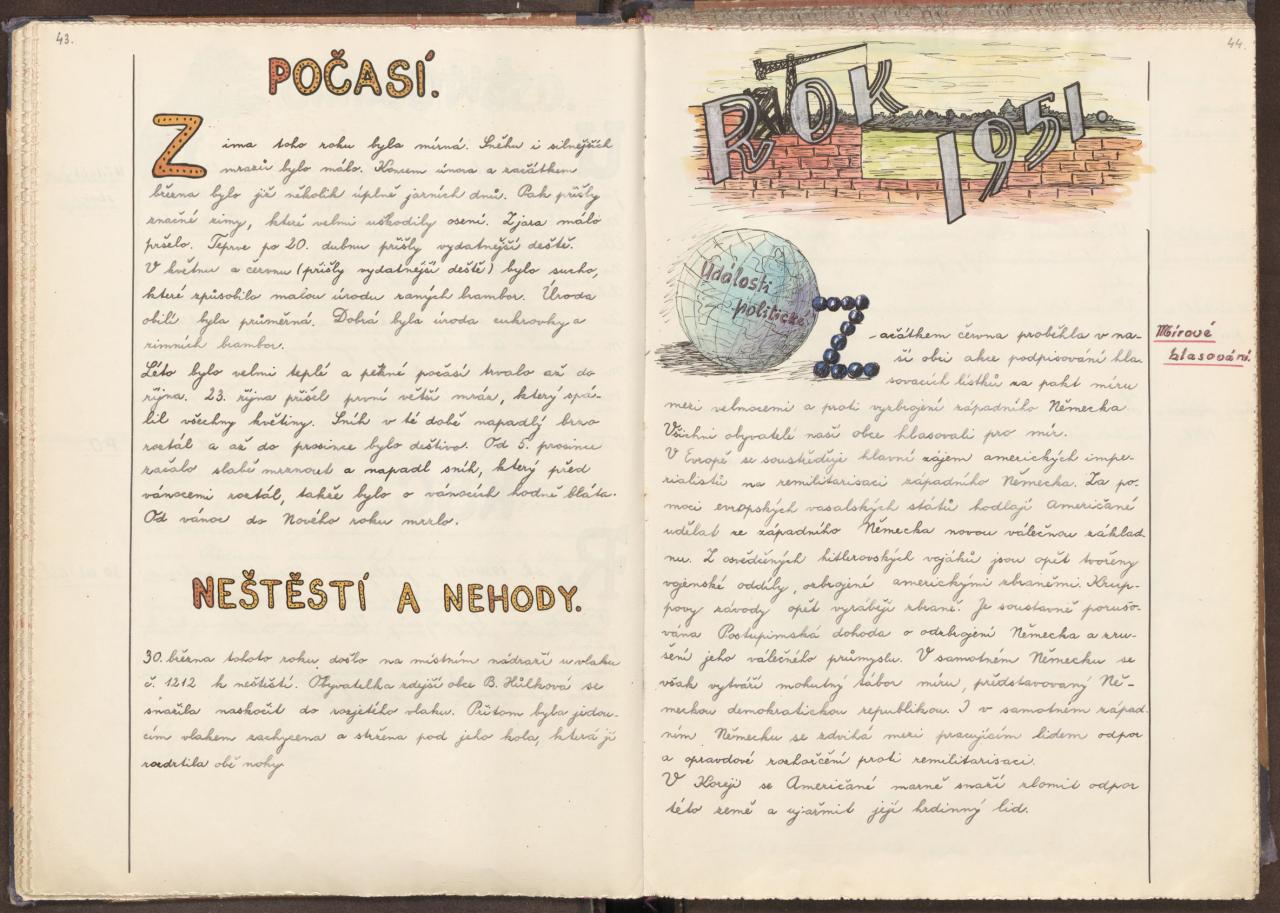 43.
POČASÍ.
Zima toho roku byla mírná. Sněhu i silnějších
mrazů bylo málo. Koncem února a začátkem
března bylo již několik úplně jarních dnů. Pak přišly
značné zimy, které velmi uškodily osení. Zjara málo
pršelo. Teprve po 20. dubnu přišly vydatnější deště.
V květnu a červnu (přišly vydatnější deště) bylo sucho,
které způsobilo malou úrodu raných brambor. Úroda
obilí byla průměrná. Dobrá byla úroda cukrovky a
zimních brambor.
Léto bylo velmi teplé a pěkné počasí trvalo až do
října. 23. října přišel první větší mráz, který spá-
lil všechny květiny. Sníh v té době napadlý brzo
roztál a až do prosince bylo deštivo. Od 5. prosince
začalo slabě mrznout a napadl sníh, který před
vánocemi roztál, takže bylo o vánocích hodně bláta.
Od vánoc do Nového roku mrzlo.
NEŠTĚSTÍ A NEHODY.
30. března tohoto roku došlo na místním nádraží u vlaku
č. 1212 k neštěstí. Obyvatelka zdejší obce B. Hůlková se
snažila naskočit do rozjetého vlaku. Přitom byla jedou-
cím vlakem zachycena a stržena pod jeho kola, která jí
rozdrtila obě nohy.
44.
ROK
1951.
Události
politické
Začátkem června proběhla v na-
ší obci akce podpisování hla-
sovacích lístků za pakt míru
mezi velmocemi a proti vyzbrojení západního Německa
Všichni obyvatelé naší obce hlasovali pro mír.
V Evropě se soustřeďuje hlavní zájem amerických impe-
rialistů na remilitarisaci západního Německa. Za po-
moci evropských vasalských států hodlají Američané
udělat ze západního Německa novou válečnou základ
nu. Z osvědčených hitlerovských vojáků jsou opět tvořeny
vojenské oddíly, ozbrojené americkými zbraněmi. Krup-
povy závody opět vyrábějí zbraně. Je soustavně porušo-
vána Postupimská dohoda o odzbrojení Německa a zru-
šení jeho válečného průmyslu. V samotném Německu se
však vytváří mohutný tábor míru, představovaný Ně-
meckou demokratickou republikou. I v samotném západ
ním Německu se zdvihá mezi pracujícím lidem odpor
a opravdové rozhořčení proti remilitarisaci.
V Koreji se Američané marně snaží zlomit odpor
této země a ujařmit její hrdinný lid.
Mírové
hlasování.